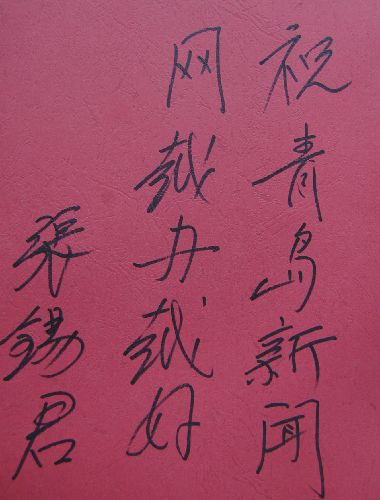 祝青岛新闻
网越办越好
张锡君